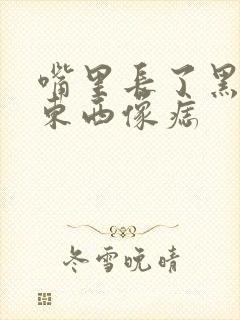 嘴里长了黑
东西像痣
冬雪晚晴